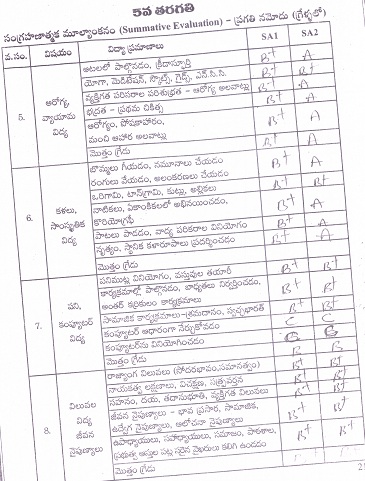 5వ తరగతి
సంగ్రహణాత్మక మూల్యాంకనం (Summative Evaluation) – ప్రగతి నమోదు (గ్రేళ్లలో)
వ.సం. విషయం విద్యా ప్రమాణాలు SA1 SA2
5. ఆరోగ్య, వ్యాయామ విద్య
ఆటలలో పాల్గొనడం, క్రీడాస్ఫూర్తి B+ A
యోగా, మెడిటేషన్, స్కౌట్స్, గైడ్స్, ఎన్.సి.సి. B+ A
వ్యక్తిగత పరిసరాల పరిశుభ్రత – ఆరోగ్య అలవాట్లు B+ A
భద్రత – ప్రథమ చికిత్స B+ A
ఆరోగ్యం, పోషణాహారం,
మంచి ఆహార అలవాట్లు B+ A
మొత్తం గ్రేడు B+ A
6. కళలు, సాంస్కృతిక విద్య
బొమ్మలు గీయడం, నమూనాలు చేయడం B+ A
రంగులు వేయడం, అలంకరణలు చేయడం
ఒరిగామి, టాన్‌గ్రామ్, కుట్లు, అల్లికలు B+ B+
నాటికలు, ఏకాంకికలలో అభినయించడం,
కొరియోగ్రఫీ B+ A
పాటలు పాడడం, వాద్య పరికరాల వినియోగం B+ A
నృత్యం, స్థానిక కళారూపాలు ప్రదర్శించడం B+ A
మొత్తం గ్రేడు
7. పని, కంప్యూటర్ విద్య
పనిముట్ల వినియోగం, వస్తువుల తయారీ B+ B+
కార్యక్రమాల్లో పాల్గొనడం, బాధ్యతలు నిర్వర్తించడం,
అంతర్ కర్రికులం కార్యక్రమాలు B+ B+
సామాజిక కార్యక్రమాలు–శ్రమదానం, స్వచ్ఛభారత్ B+ B+
కంప్యూటర్ ఆధారంగా నేర్చుకోవడం C C
కంప్యూటర్‌ను వినియోగించడం
మొత్తం గ్రేడు B B
8. విలువల విద్య జీవన నైపుణ్యాలు
రాజ్యాంగ విలువలు (సోదరభావం,సమానత్వం) B+ B+
నాయకత్వ లక్షణాలు, విచక్షణ, సత్ప్రవర్తన B+ B+
సహనం, దయ, తదానుభూతి, వ్యక్తిగత విలువలు B+ B+
జీవన నైపుణ్యాలు – భావ ప్రసార, సామాజిక,
ఉద్వేగ నైపుణ్యాలు, ఆలోచనా నైపుణ్యాలు B+ B+
ఉపాధ్యాయులు, సహాధ్యాయులు, సమాజం, పాఠశాల,
ప్రభుత్వ ఆస్తుల పట్ల సరైన వైఖరులు కలిగి ఉండడం B+ B+
మొత్తం గ్రేడు